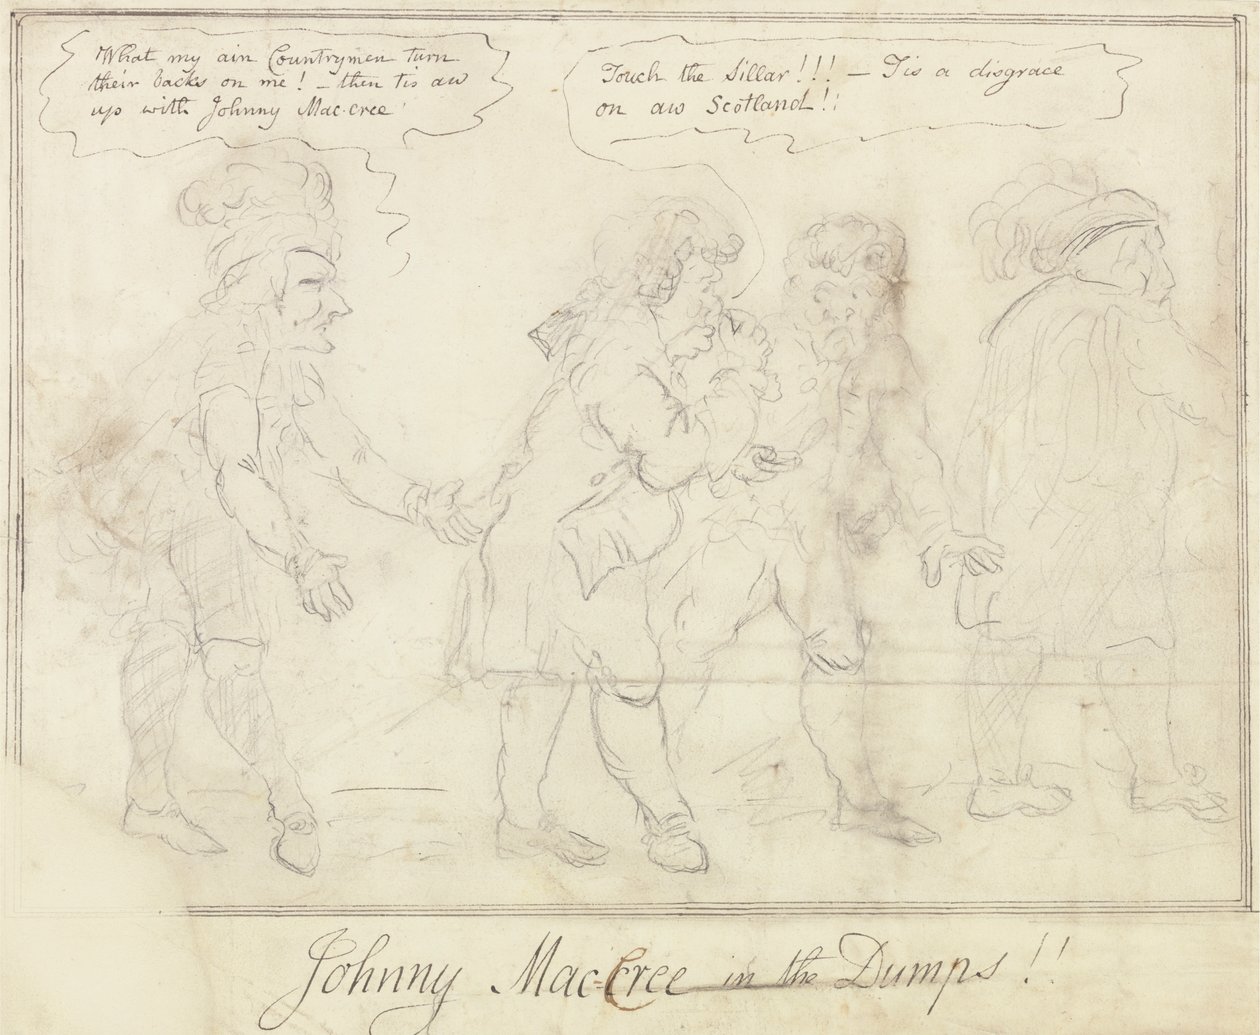 What my ain Countrymen turn
their backs on me! - then tis aw
up with Johnny Mac-cree !
Touch the Sillar!!! - Tis a disgrace
on aw Scotland!!
Johnny Mac-Cree in the Dumps!!